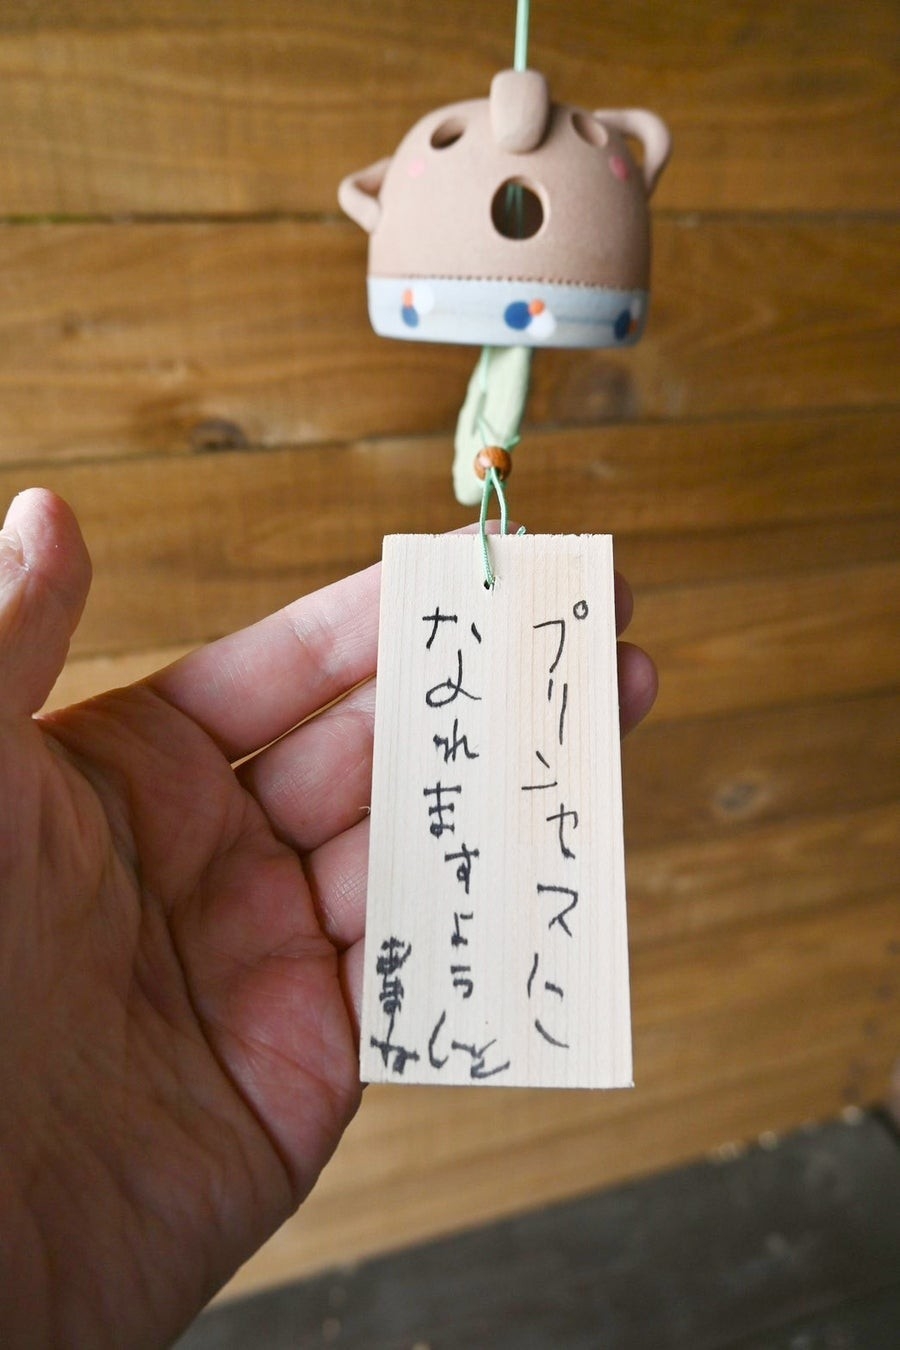 プリンセスに
なれますように